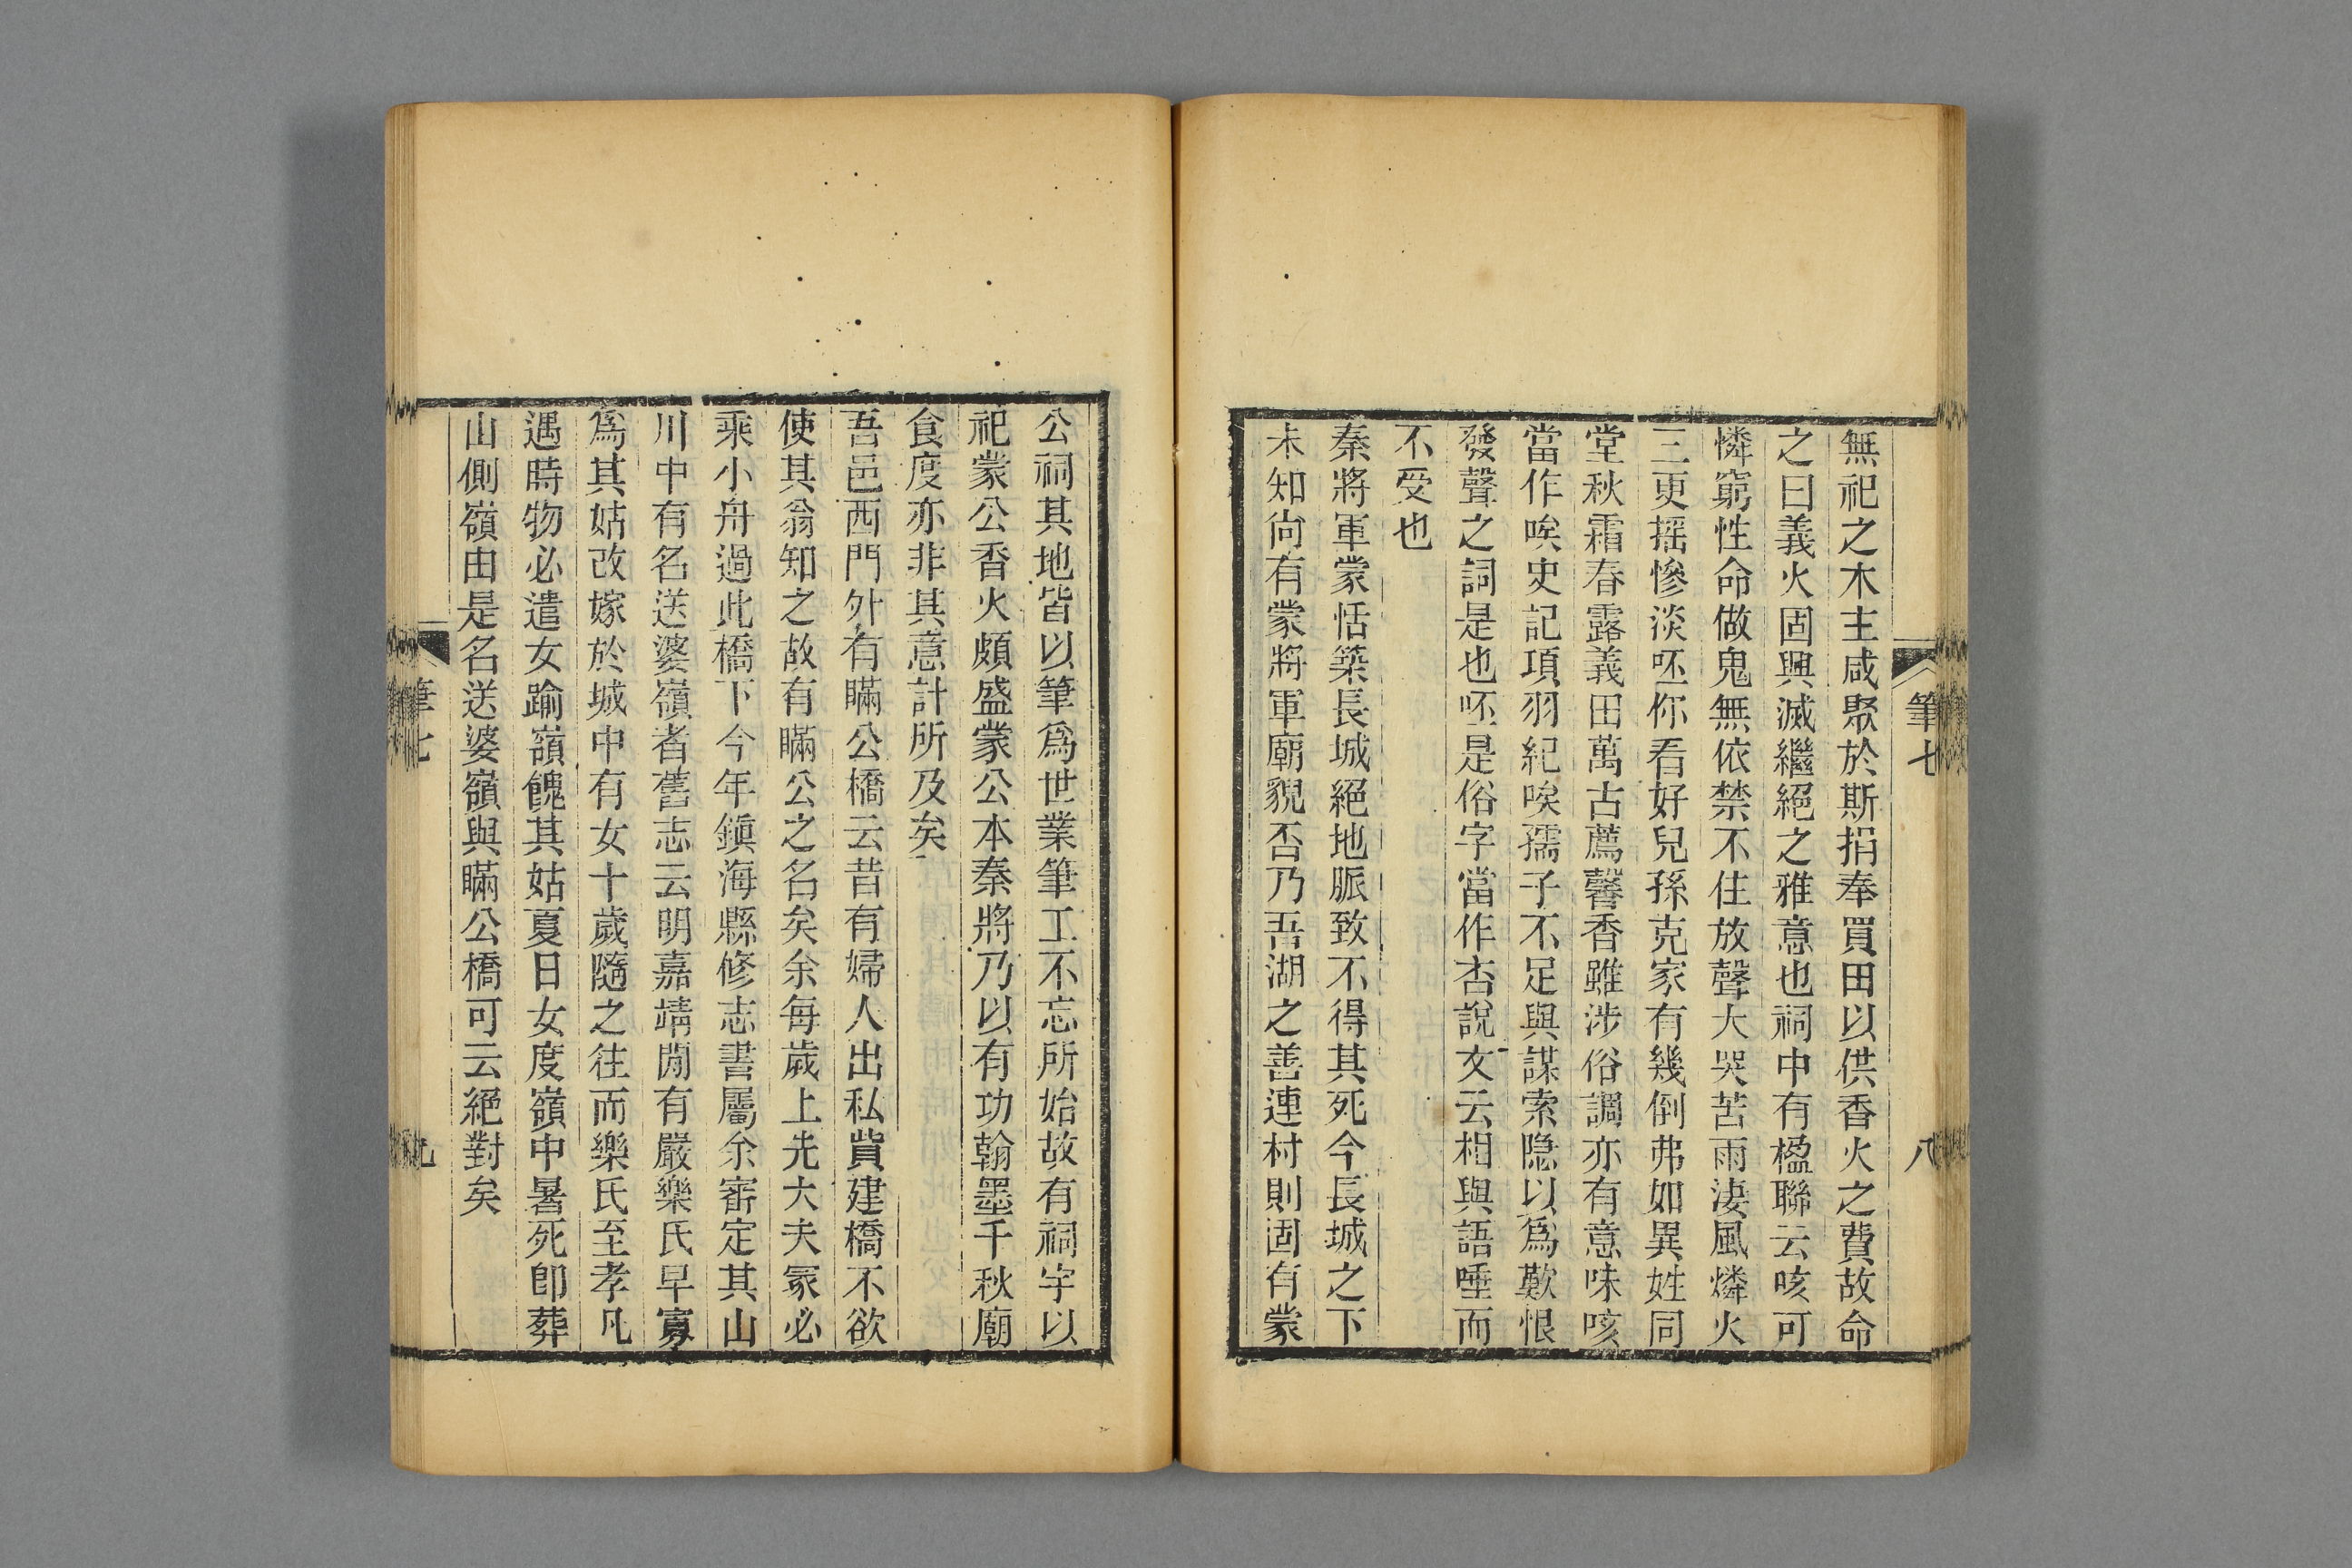 筆七
八
無祀之木主咸聚於斯捐奉買田以供香火之費故命
之曰義火固興滅繼絕之雅意也祠中有楹聯云咳可
憐窮性命做鬼無依禁不住放聲大哭苦雨淒風燐火
三更搖慘淡呸你看好兒孫克家有幾倒弗如異姓同
堂秋霜春露義田萬古薦馨香雖涉俗調亦有意味咳
當作唉史記項羽紀唉孺子不足與謀索隐以爲歎恨
發聲之詞是也呸是俗字當作咅說文云相與語唾而
不受也
秦將軍蒙恬築長城絕地脈致不得其死今長城之下
未知尙有蒙將軍廟貌否乃吾湖之善連村則固有蒙
公祠其地皆以筆爲世業筆工不忘所始故有祠宇以
祀蒙公香火頗盛蒙公本秦將乃以有功翰墨千秋廟
食度亦非其意計所及矣
吾邑西門外有瞞公橋云昔有婦人出私貲建橋不欲
使其翁知之故有瞞公之名矣余每歲上先大夫冢必
乘小舟過此橋下今年鎭海縣修志書屬余審定其山
川中有名送婆嶺者舊志云明嘉靖閒有嚴樂氏早寡
爲其姑改嫁於城中有女十歲隨之往而樂氏至孝凡
遇時物必遣女踰嶺餽其姑夏日女度嶺中暑死卽葬
山側嶺由是名送婆嶺與瞞公橋可云絕對矣
筆七
九